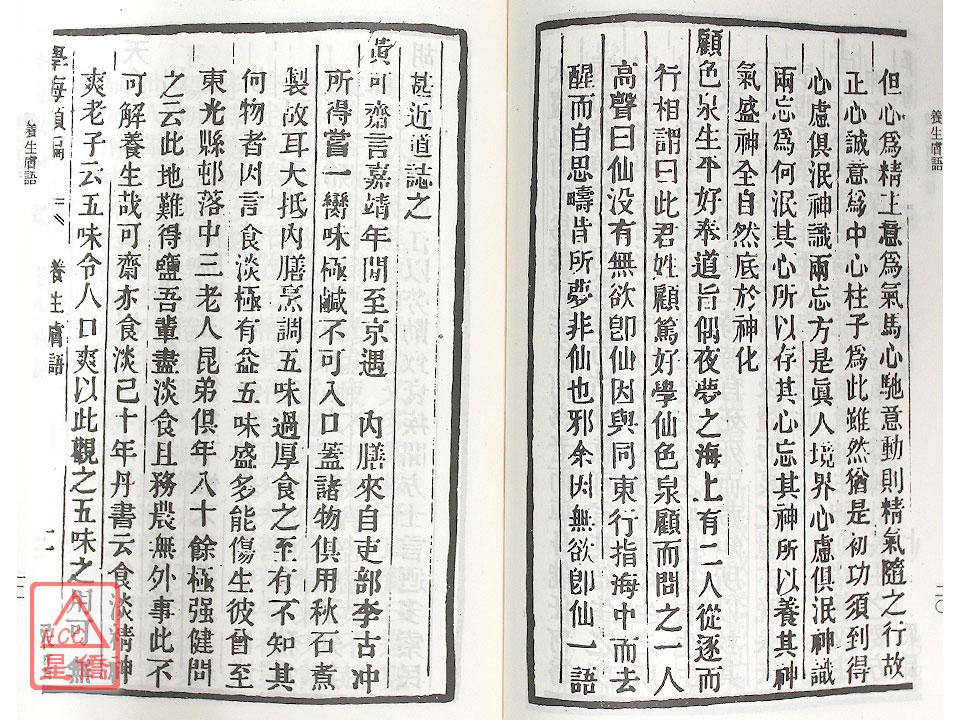 養生膚語
但心爲精主意爲氣馬心馳意動則精氣隨之行故
正心誠意爲中心柱子爲此雖然猶是初功須到得
心慮俱泯神識兩忘方是眞人境界心慮俱泯神識
兩忘爲何泯其心所以存其心忘其神所以養其神
氣盛神全自然底於神化
顧色泉生平好奉道旨偶夜夢之海上有二人從逐而
行相謂曰此君姓顧篤好學仙色泉顧而問之一人
高聲曰仙没有無欲卽仙因與同東行指海中而去
醒而自思疇昔所夢非仙也邪余因無欲卽仙一語
二〇
甚近道誌之
黄可齋言嘉靖年間至京遇 內膳來自吏部李古冲
所得嘗一臠味極鹹不可入口蓋諸物俱用秋石煮
製故耳大抵內膳烹調五味過厚食之至有不知其
何物者因言食淡極有益五味盛多能傷生彼曾至
東光縣邨落中三老人昆弟俱年八十餘極强健問
之云此地難得鹽吾輩盡淡食且務農無外事此不
可解養生哉可齋亦食淡已十年丹書云食淡精神
爽老子云五味令人口爽以此觀之五味之用可無
學海類編 養生膚語 十一
養生膚語
ECC
星僑